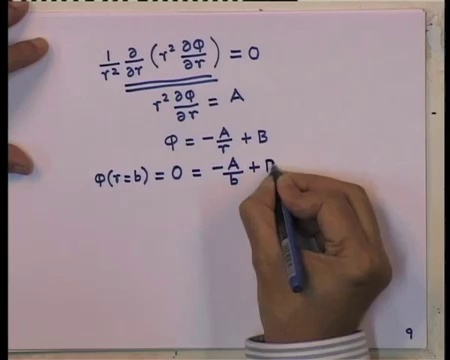 1/r² ∂/∂r (r² ∂φ/∂r) = 0
r² ∂φ/∂r = A
φ = -A/r + B
φ(r=b) = 0 = -A/b +
9